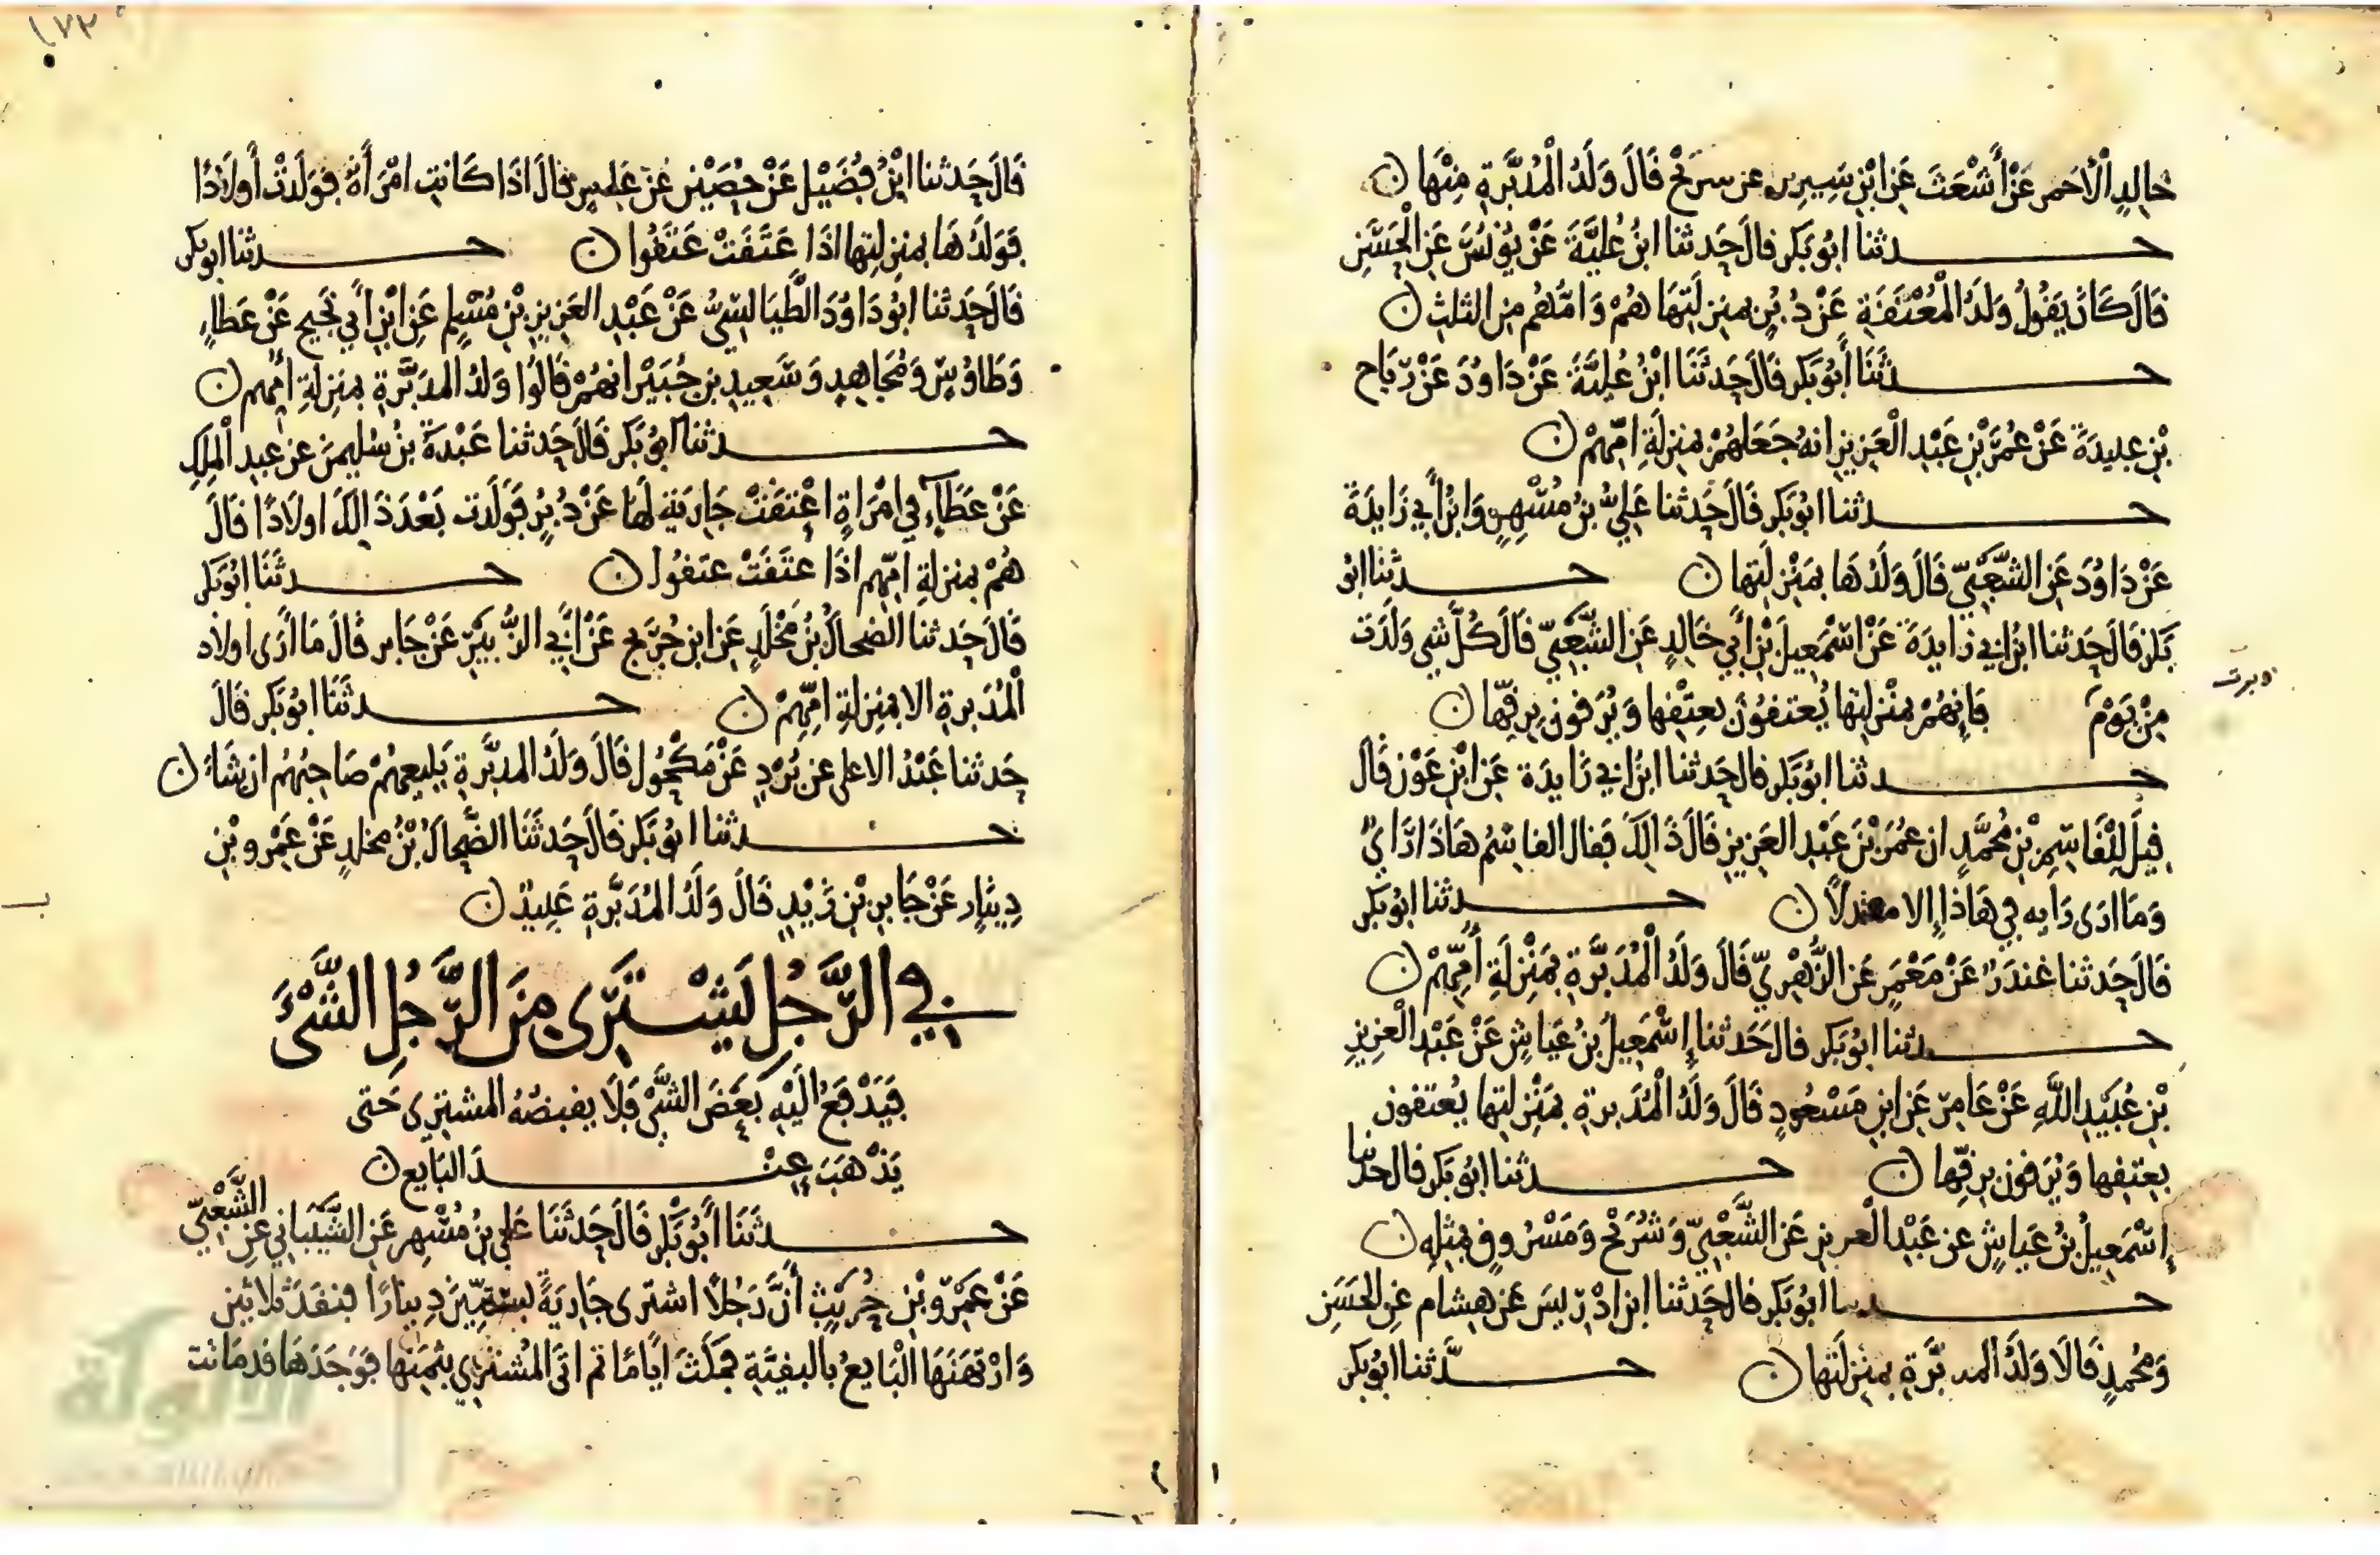 خالد الأحمر عن أشعث عن ابن سيرين عن شريح قال ولد المدبرة منها ن
حدثنا ابو بكر قال حدثنا ابن علية عن يونس عن الحسن
قال كان يقول ولد المعتقة عن دبر بمنزلتها هم وامهم من الثلث ن
حدثنا أبو بكر قال حدثنا ابن علية عن داود عن رباح
بن عبيدة عن عمر بن عبد العزيز انه جعلهم بمنزلة امهم ن
حدثنا ابو بكر قال حدثنا علي بن مسهر وابن أبي زايدة
عن داود عن الشعبي قال ولدها بمنزلتها ن حدثنا ابو
بكر قال حدثنا ابن ابي زايدة عن اسمعيل بن أبي خالد عن الشعبي قال كل شي ولدت
من يوم فانهم بمنزلتها يعتقون بعتقها ويرقون برقها ن
دبرت
حدثنا ابو بكر قال حدثنا ابن ابي زايدة عن ابن عون قال
قيل للقاسم بن محمد ان عمر بن عبد العزيز قال ذالك فقال القاسم هاذا راي
وما ارى رايه في هاذا إلا معتدلا ن حدثنا ابو بكر
قال حدثنا غندر عن معمر عن الزهري قال ولد المدبرة بمنزلة أمهم ن
حدثنا ابو بكر قال حدثنا إسمعيل بن عياش عن عبد العزيز
بن عبيد الله عن عامر عن ابن مسعود قال ولد المدبرة بمنزلتها يعتقون
بعتقها ويرقون برقها ن حدثنا ابو بكر قال حدثنا
إسمعيل بن عياش عن عبد العزيز عن الشعبي وشريح ومسروق بمثله ن
حدثنا ابو بكر قال حدثنا ابن ادريس عن هشام عن الحسن
ومحمد قالا ولد المدبرة بمنزلتها ن حدثنا ابو بكر
١٧٢
قال حدثنا ابن فضيل عن حصين عن عامر قال اذا كانت امرأة فولدت أولادا
فولدها بمنزلتها اذا عتقت عتقوا ن حدثنا ابو بكر
قال حدثنا ابو داود الطيالسي عن عبد العزيز بن مسلم عن ابن أبي نجيح عن عطاء
وطاوس ومجاهد وسعيد بن جبير انهم قالوا ولد المدبرة بمنزلة أمهم ن
حدثنا ابو بكر قال حدثنا عبدة بن سليمن عن عبد الملك
عن عطاء في امراة اعتقت جارية لها عن دبر فولدت بعد ذالك اولادا قال
هم بمنزلة امهم اذا عتقت عتقوا ن حدثنا ابو بكر
قال حدثنا الضحاك بن مخلد عن ابن جريج عن أبي الزبير عن جابر قال ما أرى اولاد
المدبرة الا بمنزلة امهم ن حدثنا ابو بكر قال
حدثنا عبد الاعلى عن برد عن مكحول قال ولد المدبرة يبيعهم صاحبهم ان شاء ن
حدثنا ابو بكر قال حدثنا الضحاك بن مخلد عن عمرو بن
دينار عن جابر بن زيد قال ولد المدبرة عبيد ن
في الرجل يشتري من الرجل الشيء
فيدفع اليه بعض الشي فلا يقبضه المشتري حتى
يذهب عند البايع ن
حدثنا أبو بكر قال حدثنا علي بن مسهر عن الشيباني عن الشعبي
عن عمرو بن حريث أن رجلا اشترى جارية بستين دينارا فنقد ثلاثين
وارتهنها البايع بالبقية فمكث اياما ثم اتى المشتري بثمنها فوجدها قد ماتت
الألوكة